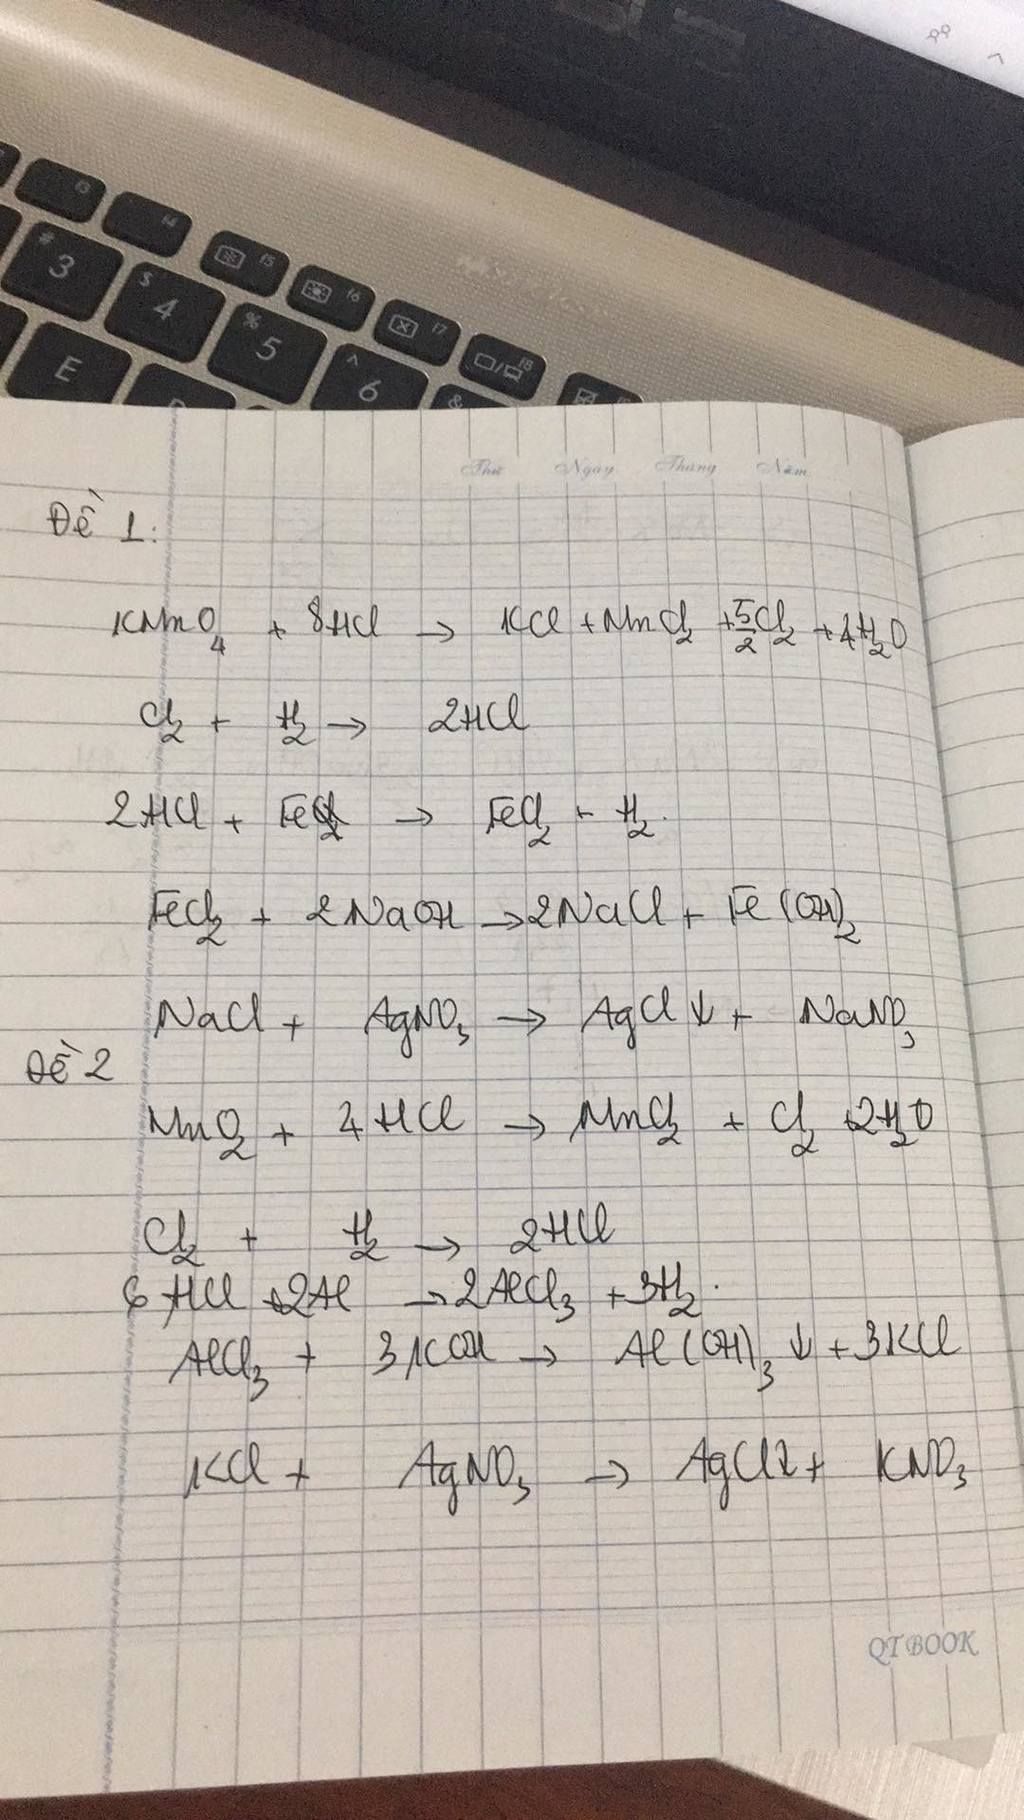 f3 f4 f5 f6 f7 f8
# 3 $ 4 % 5 ^ 6 &
E
Thứ Ngày Tháng Năm
Đề 1:
KMnO4 + 8HCl → KCl + MnCl2 + 5/2Cl2 + 4H2O
Cl2 + H2 → 2HCl
2HCl + Fe → FeCl2 + H2.
FeCl2 + 2NaOH → 2NaCl + Fe(OH)2
NaCl + AgNO3 → AgCl↓ + NaNO3
Đề 2
MnO2 + 4HCl → MnCl2 + Cl2 + 2H2O
Cl2 + H2 → 2HCl
6HCl + 2Al → 2AlCl3 + 3H2.
AlCl3 + 3KOH → Al(OH)3↓ + 3KCl
KCl + AgNO3 → AgCl↓ + KNO3
QTBOOK